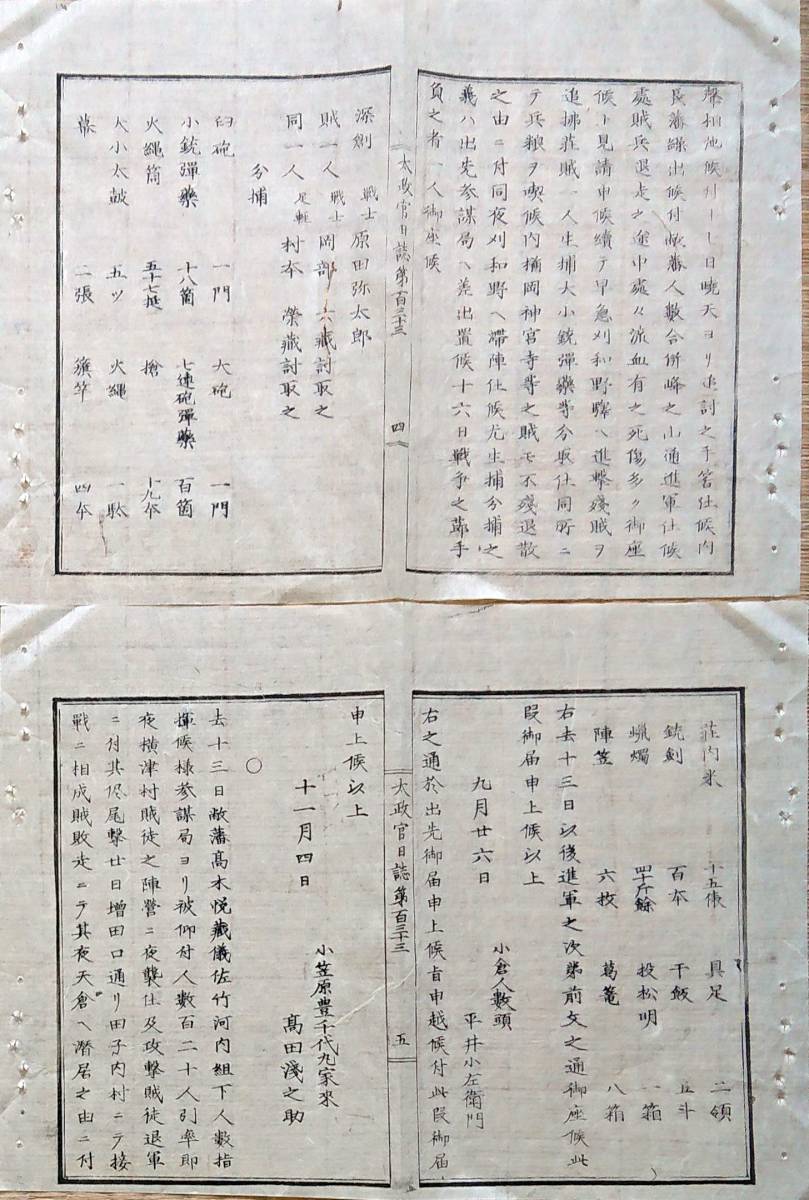 聲相池候付十七日曉天ヨリ追討之手筈仕候内
長藩繰出候付敝藩人数合併峰之山通進軍仕候
處賊兵退走之途中處々流血有之死傷多ク御座
候ト見請申候續テ早急刈和野驛ヘ進撃殘賊ヲ
追拂莊賊一人生捕大小銃彈藥等分取仕同所ニ
テ兵粮ヲ喫候内楢岡神宮寺等之賊モ不殘退散
之由ニ付同夜刈和野ヘ滯陣仕候尤生捕分捕之
義ハ出先参謀局ヘ差出置候十六日戰爭之節手
負之者一人御座候
太政官日誌第百三十三 四
深創 戰士 原田弥太郎
賊一人 戰士 岡部 六藏討取之
同一人 足輕 村本 榮藏討取之
分捕
臼砲 一門 大砲 一門
小銃彈藥 十八箇 七連砲彈藥 百箇
火繩筒 五十七挺 槍 十九本
大小太鼓 五ツ 火繩 一駄
幕 二張 籏竿 四本
莊内米 十五俵 具足 二領
銃劍 百本 干飯 五斗
蝋燭 四十斤餘 投松明 一箱
陣笠 六枚 葛篭 八箱
右去十三日以後進軍之次第前文之通御座候此
段御届申上候以上
九月廿六日 小倉人數頭
平井小左衛門
右之通於出先御届申上候旨申越候付此段御届
太政官日誌第百三十三 五
申上候以上
十一月四日 小笠原豊千代丸家来
髙田淺之助
○
去十三日敝藩髙木悦藏儀佐竹河内組下人數指
揮候様参謀局ヨリ被仰付人數百二十人引率即
夜横津村賊徒之陣營ニ夜襲仕及攻擊賊徒退軍
ニ付其侭尾擊廿日増田口通リ田子内村ニテ接
戰ニ相成賊敗走ニテ其夜天倉ヘ潜居之由ニ付